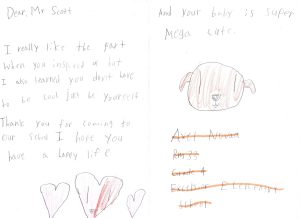 Dear, Mr Scott
I really like the part
when you inspired a lot
I also learned you don't have
to be cool just be yourself
Thank you for coming to
our school I hope you
have a happy life
And your baby is super
mega cute.